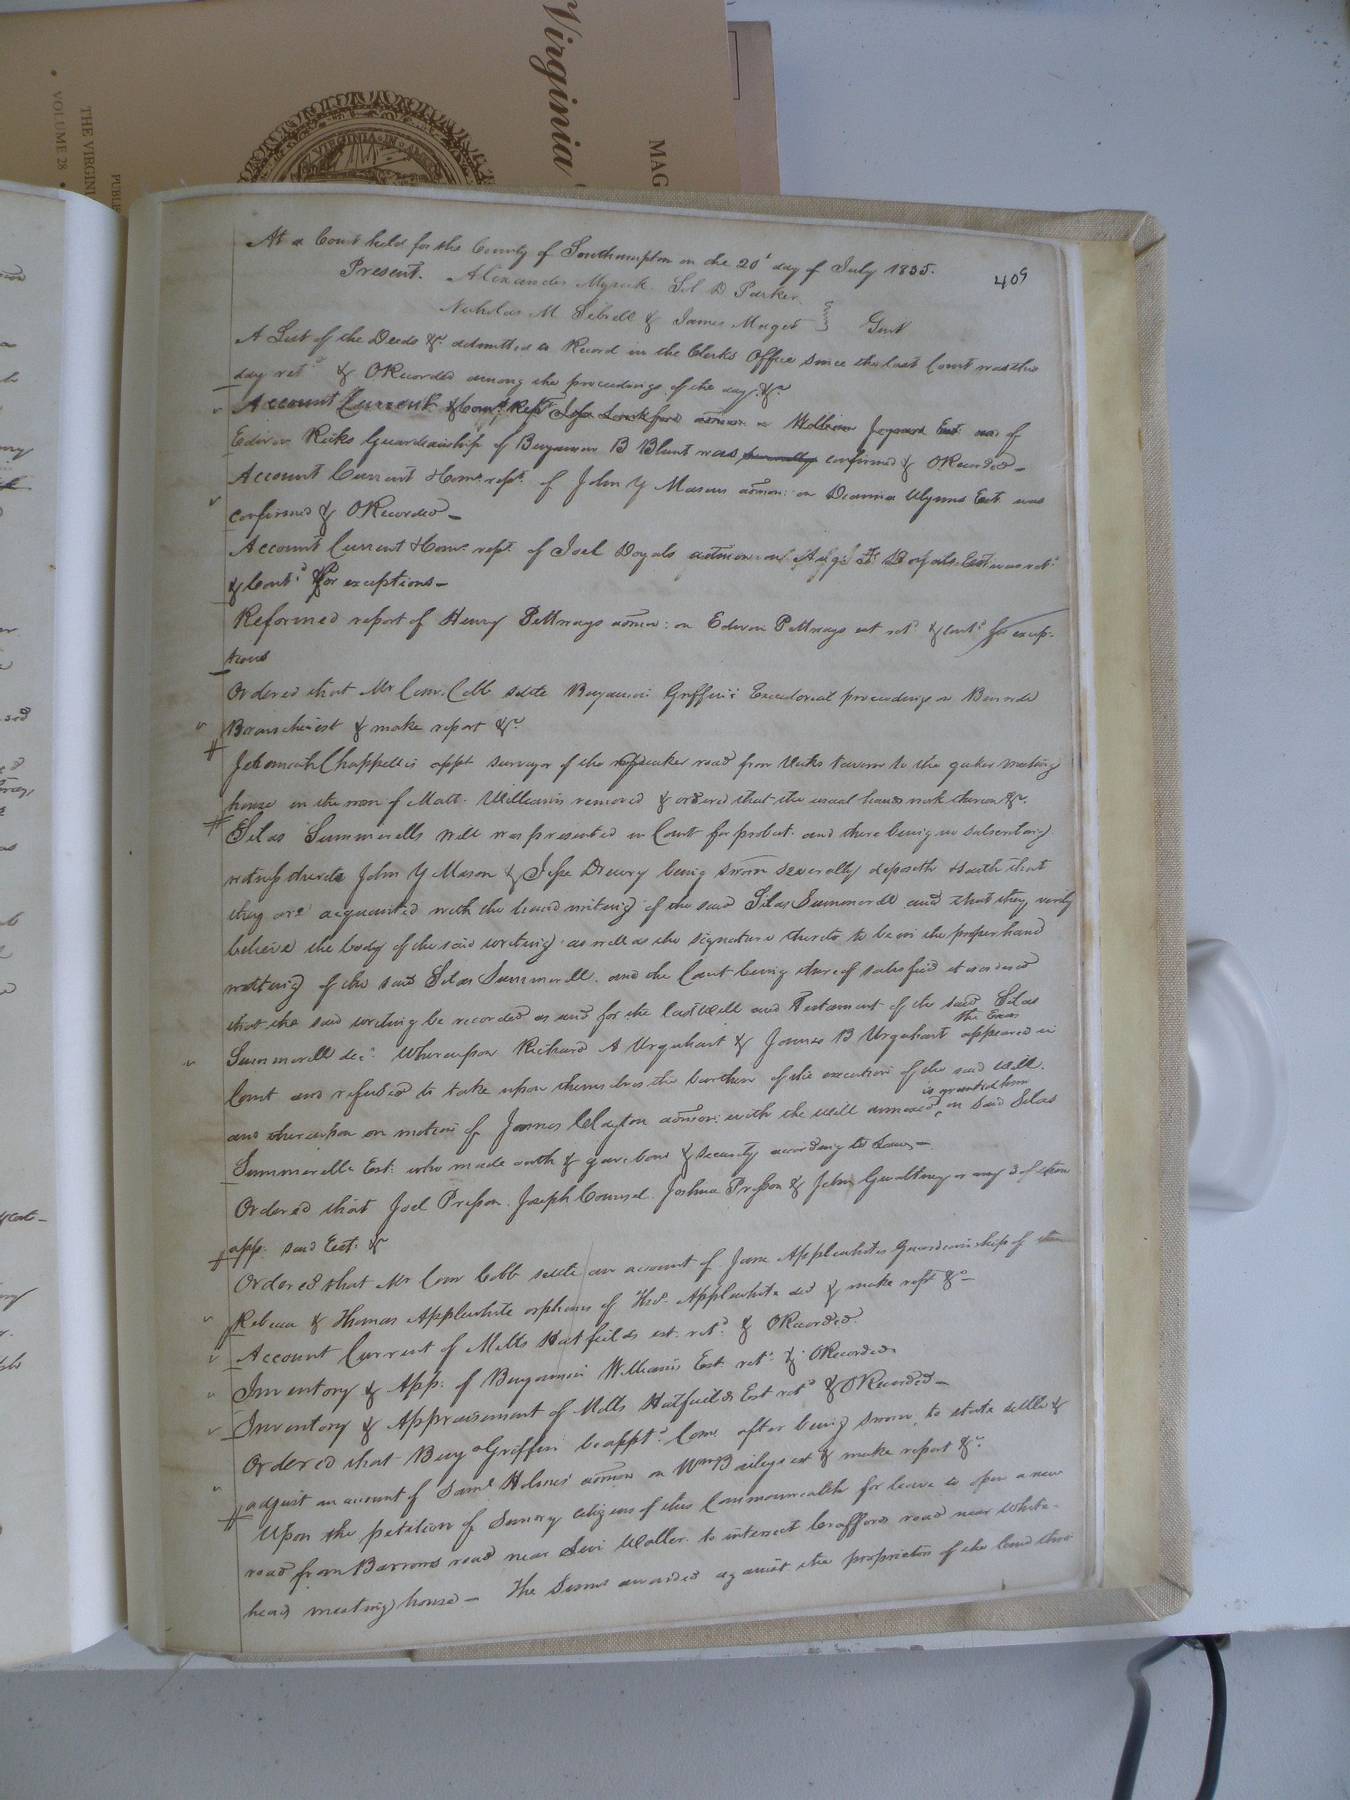 Virginia
MAG
THE VIRGINI
VOLUME 28
PUBLI
VIRGINIA
409
At a Court held for the County of Southampton on the 20th day of July 1835.
Present. Alexander Myrick Sol D Parker
Nicholas M Sebrell & James Maget } Gent
A List of the Deeds &c admitted to Record in the Clerks Office since the last Court was this
day retd & ORecorded among the proceedings of the day &c
Account Current & Comrs Rept
Edwin Ricks Guardianship of Benjamin B Blunt was confirmed & ORecorded
Account Current & Comrs rept of John Y Masons admon: on Wynns Est was
confirmed & ORecorded
Account Current & Comrs rept of Joel Doyals admon on Doyals Est was retd
& Contd for exceptions
Reformed report of Henry Pettways admon: on Edwin Pettways est retd & contd for excep-
tions
Ordered that Mr Comr Cobb settle Benjamin Griffins Executorial proceedings on
est & make report &c
Jehomeah Chappell is appt surveyor of the road from Vicks tavern to the quaker meeting
house in the room of Matt. Williams removed & ordered that the usual hands work thereon &c.
Silas Summerells will was presented in Court for probat and there being no subscribing
witness thereto John Y Mason & Jesse Drewry being sworn severally deposeth & saith that
they are acquainted with the hand writing of the said Silas Summerell and that they verily
believe the body of the said writing as well as the signature thereto to be in the proper hand
writing of the said Silas Summerell. and the Court being thereof satisfied it is ordered
that the said writing be recorded as and for the last Will and Testament of the said Silas
Summerell decd. Whereupon Richard A Urquhart & James B Urquhart the Exors appeared in
Court and refused to take upon themselves the burthen of the execution of the said will.
and thereupon on motion of James Clayton admon: with the will annexed is granted him on said Silas
Summerells Est. who made oath & gave bond & security according to Law
Ordered that Joel Presson. Joseph Counsel. Joshua Presson & John Gwaltney or any 3 of them
app. said Est. &c
Ordered that Mr Comr Cobb settle an account of Jane Applewhites Guardianship of
Rebecca & Thomas Applewhite orphans of Applewhite decd & make rept &c
Account Current of Mills Hatfields est. retd & ORecorded.
Inventory & App: of Benjamin Williams Est retd & ORecorded.
Inventory & Appraisement of Mills Hatfields Est retd & ORecorded
Ordered that Benj Griffin be apptd Comr after being sworn, to state settle &
adjust an account of Saml Holmes admon on Wm Baileys est & make report &c
Upon the petition of Sundry citizens of this Commonwealth for leave to open a new
road from Barrows road near Levi Waller to intersect Crafford road near White-
head meeting house — The Sums awarded against the proprietors of the land thro